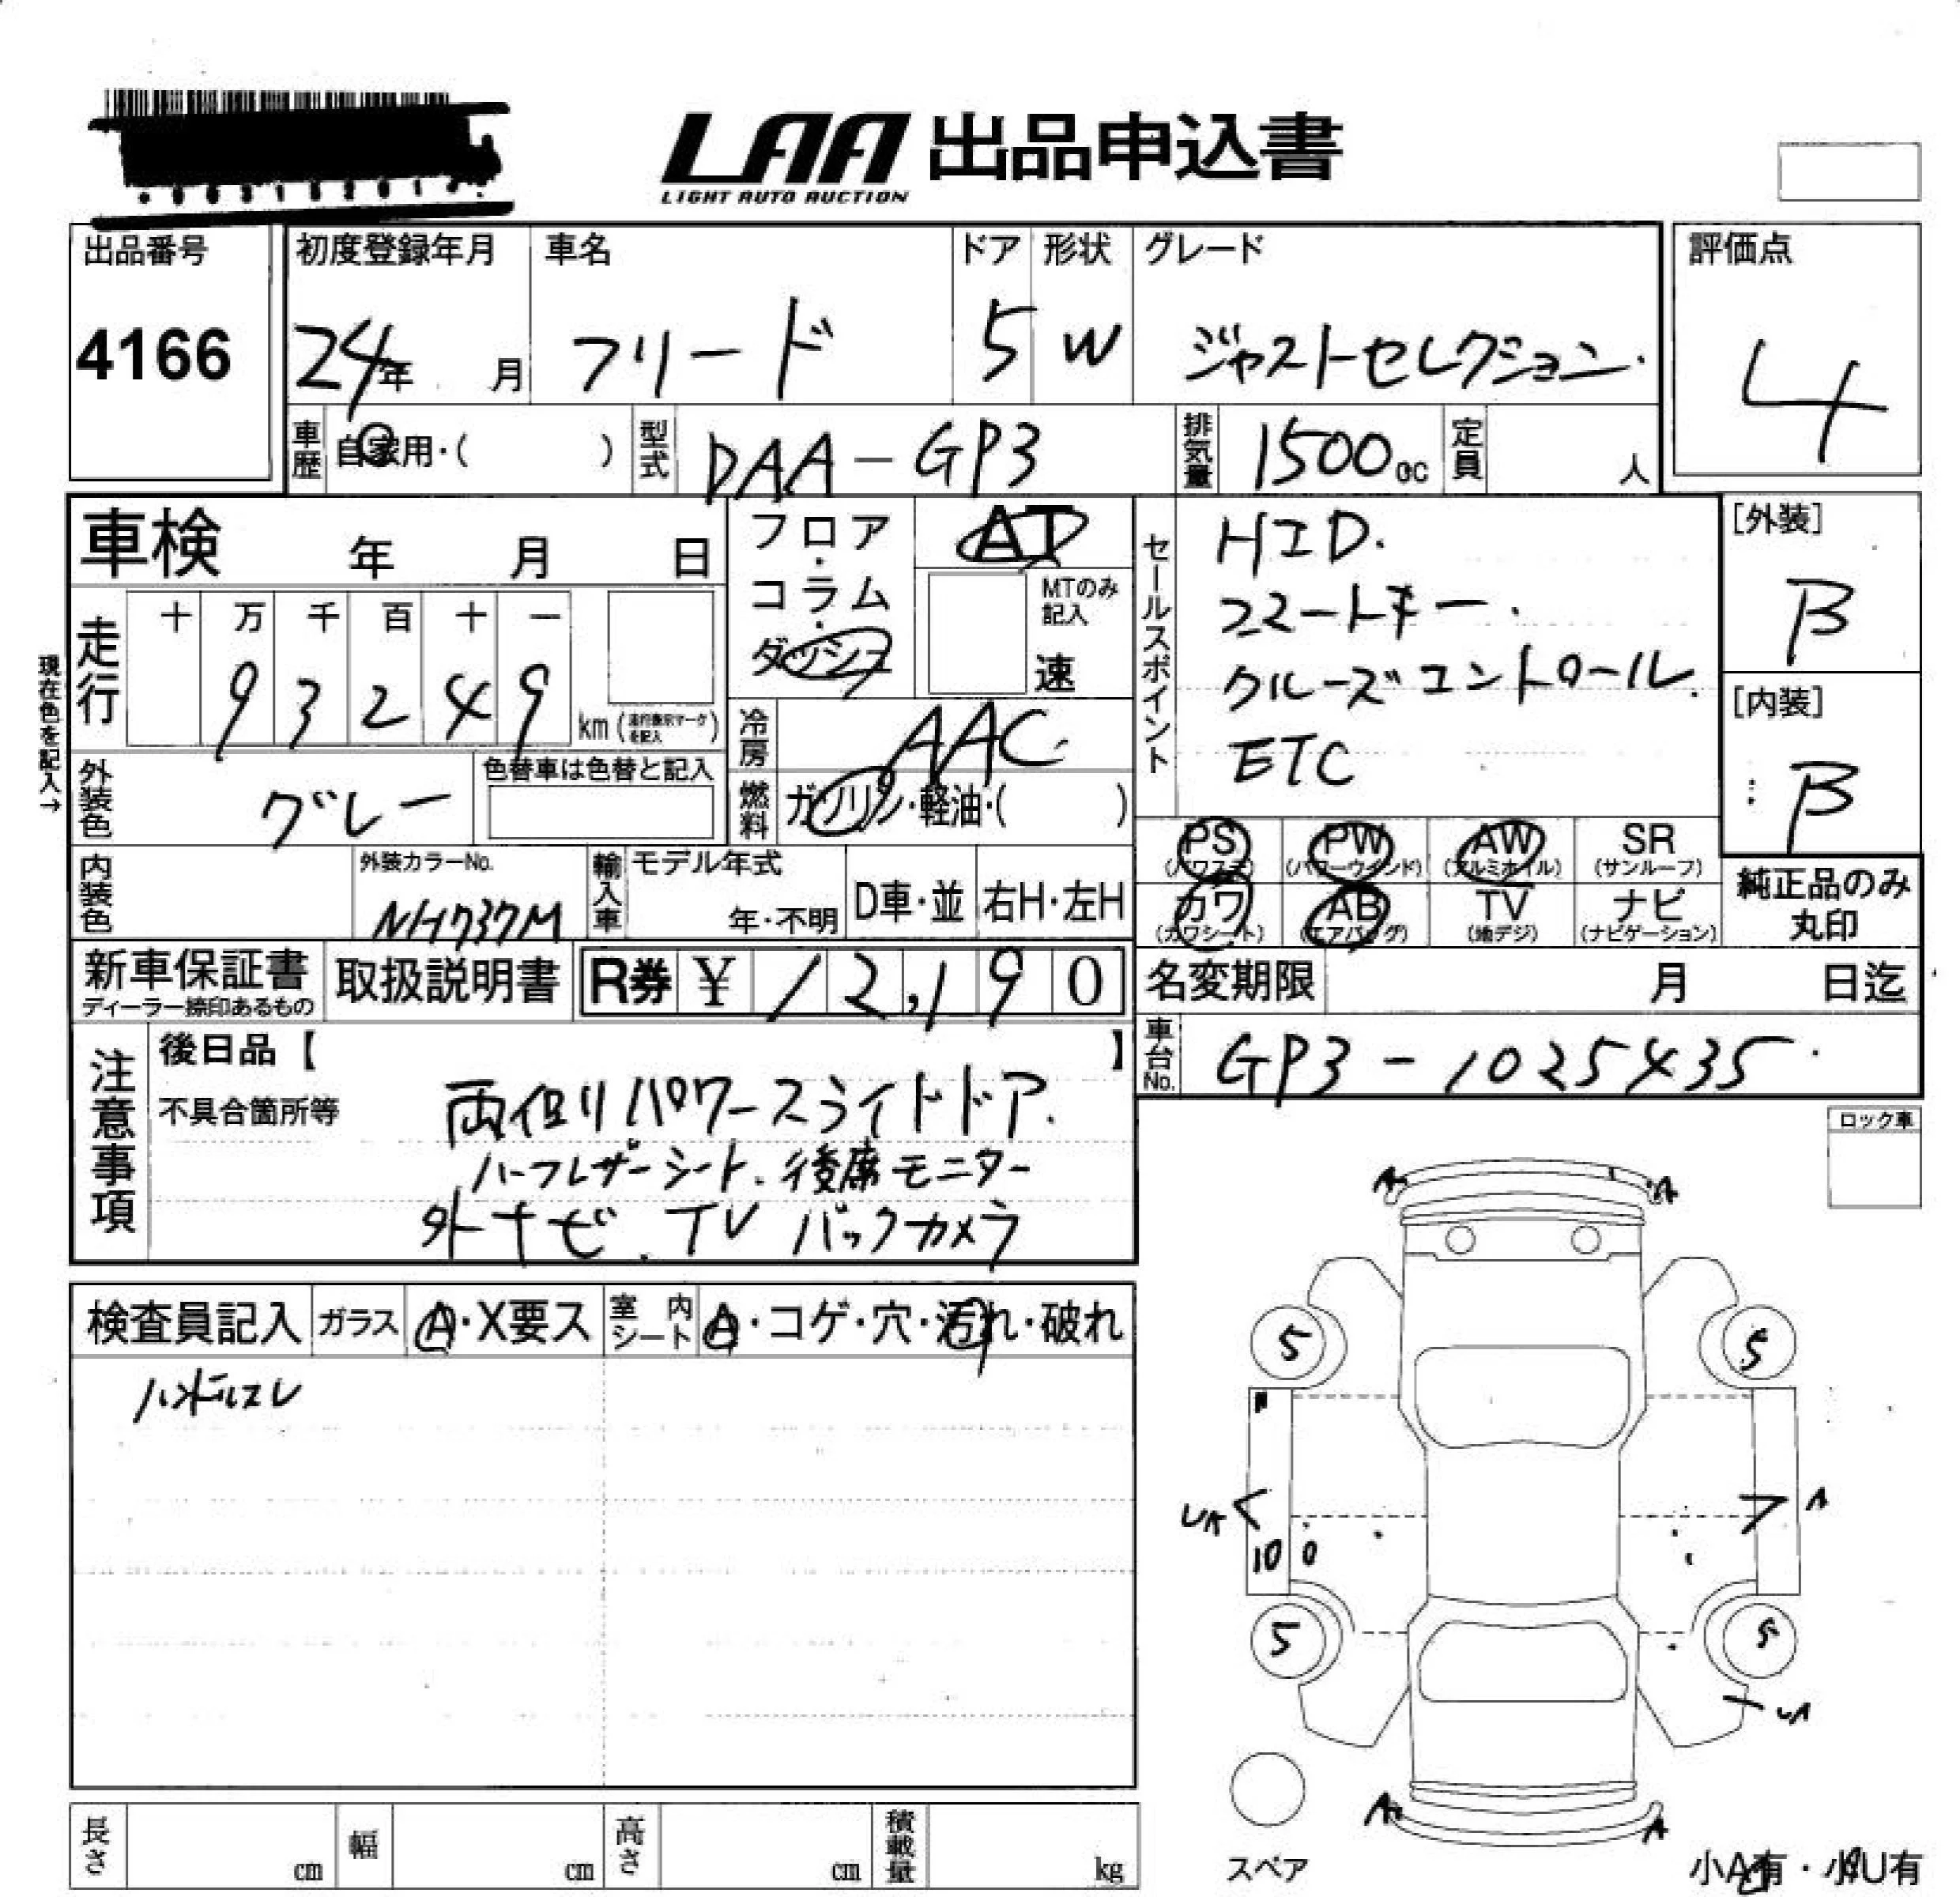 LAA 出品申込書
LIGHT AUTO AUCTION
出品番号
4166
初度登録年月
24年 月
車名
フリード
ドア
5
形状
W
グレード
ジャストセレクション
評価点
4
車歴 自家用・( )
型式 DAA-GP3
排気量 1500cc
定員 人
車検 年 月 日
フロア・コラム・ダッシュ
AT
MTのみ記入
速
セールスポイント
HID.
スマートキー.
クルーズコントロール.
ETC
[外装]
B
[内装]
B
現在色を記入→
走行
十 万 千 百 十 一
9 3 2 4 9
km (走行表示マークを記入)
冷房 AAC
燃料 ガソリン・軽油・( )
外装色 グレー
色替車は色替と記入
内装色
外装カラーNo.
NH737M
輸入車
モデル年式
年・不明
D車・並
右H・左H
PS (パワステ)
PW (パワーウインド)
AW (アルミホイル)
SR (サンルーフ)
カワ (カワシート)
AB (エアバッグ)
TV (地デジ)
ナビ (ナビゲーション)
純正品のみ
丸印
新車保証書
ディーラー捺印あるもの
取扱説明書
R券 ¥ 12,190
名変期限 月 日迄
車台No. GP3-1025435
注意事項
後日品【 】
不具合箇所等
両側パワースライドドア.
ハーフレザーシート. 後席モニター
外ナビ. TV バックカメラ
ロック車
検査員記入
ガラス A・X要ス
室内シート A・コゲ・穴・汚れ・破れ
ハンドルスレ
A A
5 5
UA A
10
5 5
UA
A A
スペア
小A有・小U有
長さ cm
幅 cm
高さ cm
積載量 kg